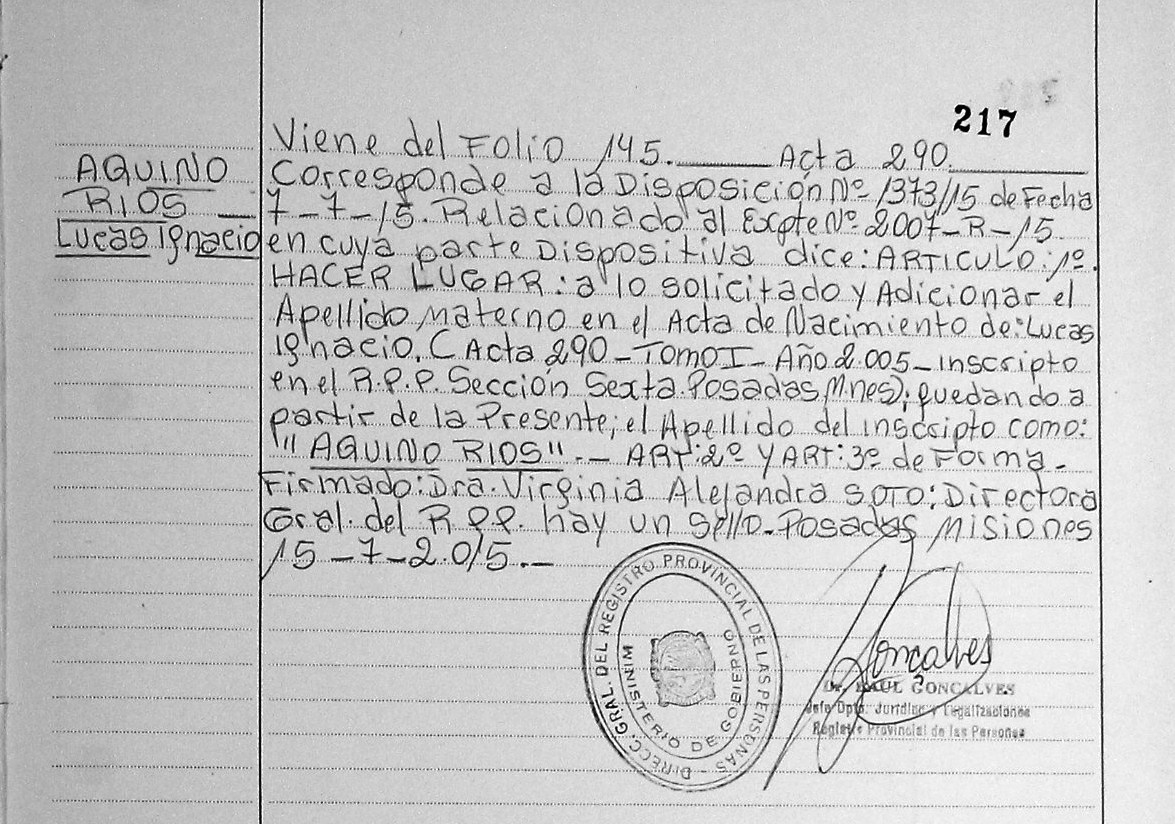 217
Viene del Folio 145. Acta 290.
AQUINO
RIOS
Lucas Ignacio
Corresponde a la Disposición Nº 1373/15 de Fecha
7-7-15. Relacionado al Excpte Nº 2007-R-15
en cuya parte Dispositiva dice: ARTICULO: 1º.
HACER LUGAR: a lo solicitado y Adicionar el
Apellido Materno en el Acta de Nacimiento de: Lucas
Ignacio. C Acta 290 - Tomo I - Año 2.005 - inscripto
en el R.P.P. Sección Sexta. Posadas (Mnes); quedando a
partir de la Presente; el Apellido del inscripto como:
"AQUINO RIOS". - ART: 2º y ART: 3º de Forma -
Firmado: Dra. Virginia Alejandra SOTO: Directora
Gral. del R.P.P. hay un sello - Posadas Misiones
15-7-2.015. -
DIRECC. GRAL. DEL REGISTRO PROVINCIAL DE LAS PERSONAS -
MINISTERIO DE GOBIERNO
Gonçalves
Dr. RAUL GONÇALVES
Jefe Dpto. Jurídico y Legalizaciones
Registro Provincial de las Personas